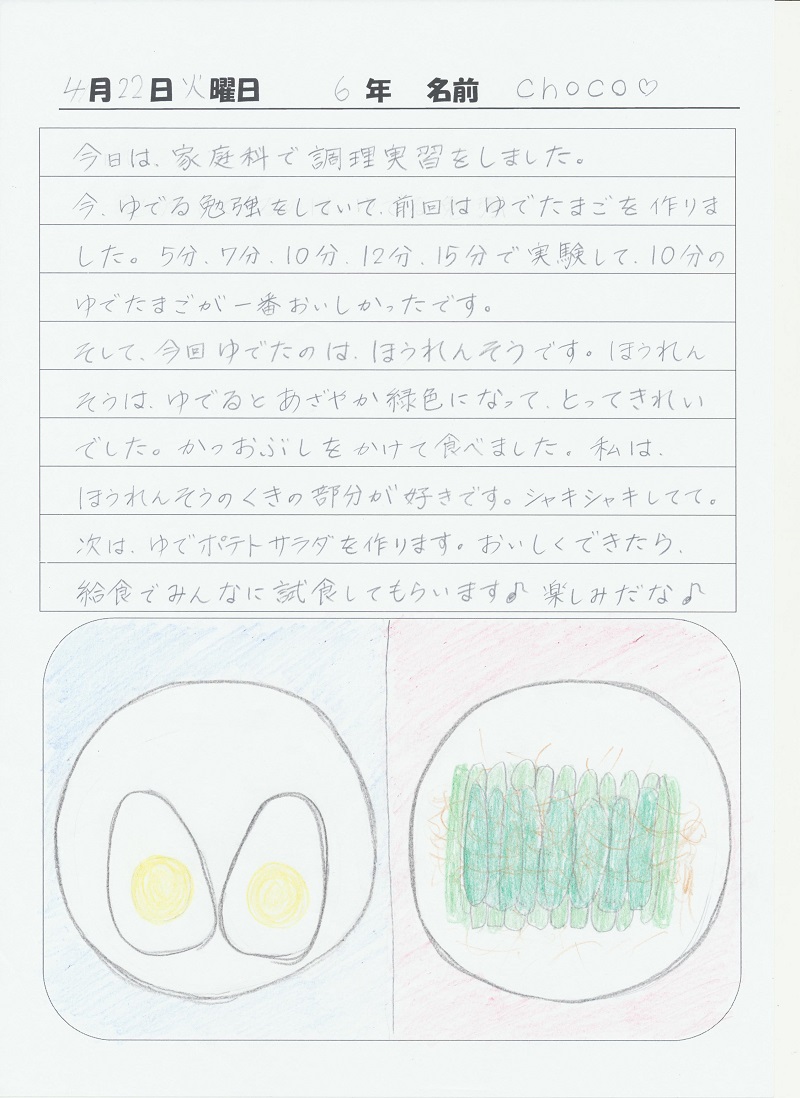 4月22日火曜日 6年 名前 choco♡
今日は、家庭科で調理実習をしました。
今、ゆでる勉強をしていて、前回はゆでたまごを作りま
した。5分、7分、10分、12分、15分で実験して、10分の
ゆでたまごが一番おいしかったです。
そして、今回ゆでたのは、ほうれんそうです。ほうれん
そうは、ゆでるとあざやか緑色になって、とってきれい
でした。かつおぶしをかけて食べました。私は、
ほうれんそうのくきの部分が好きです。シャキシャキしてて。
次は、ゆでポテトサラダを作ります。おいしくできたら、
給食でみんなに試食してもらいます♪ 楽しみだな♪